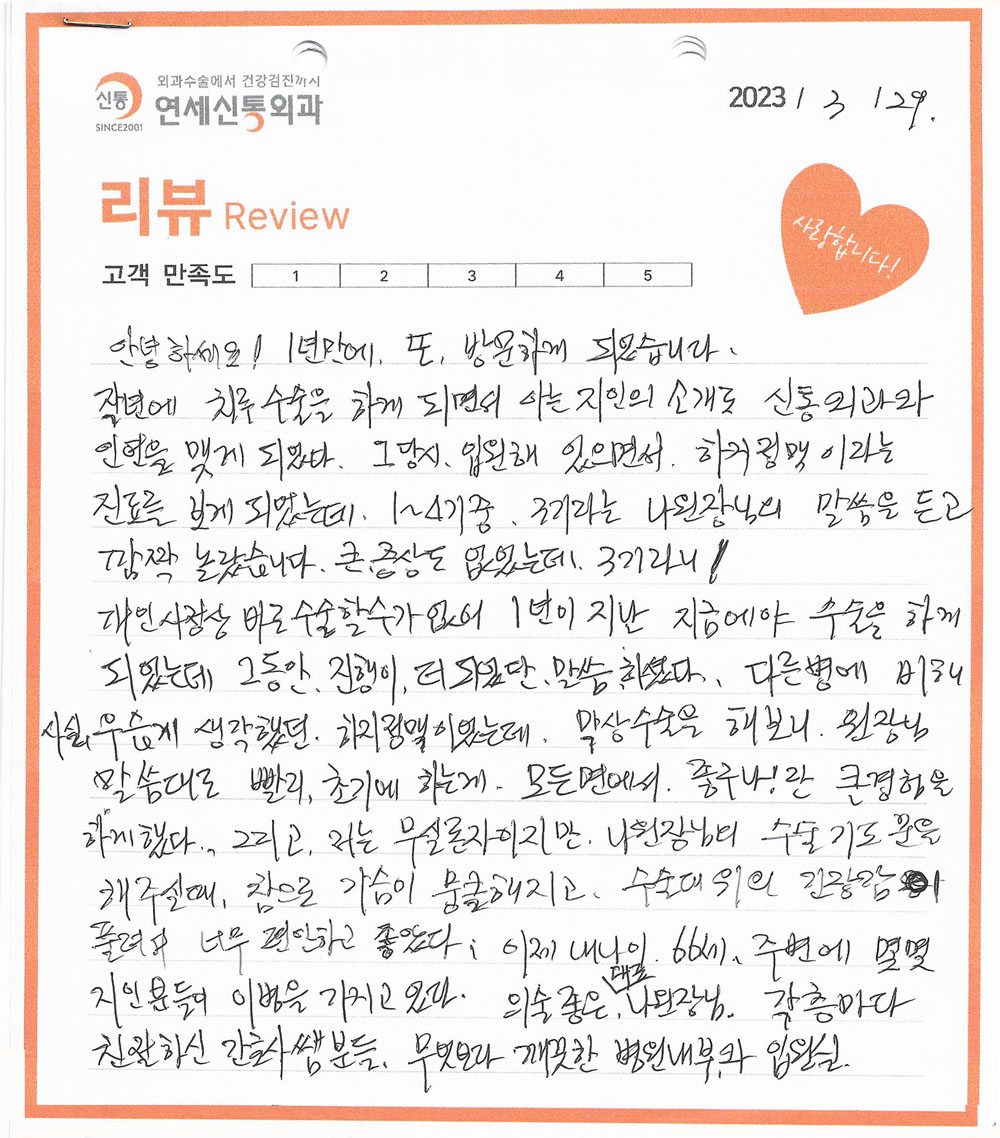 외과수술에서 건강검진까지
신통
연세신통외과
SINCE2001
2023 / 3 / 29.
리뷰 Review
사랑합니다!
고객 만족도 1 2 3 4 5
안녕하세요! 1년만에, 또, 방문하게 되었습니다.
작년에 치루수술을 하게 되면서 아는 지인의 소개로 신통외과와
인연을 맺게 되었다. 그당시, 입원해 있으면서. 하지정맥이라는
진료를 보게 되었는데. 1~4기중, 3기라는 나원장님의 말씀을 듣고
깜짝 놀랐습니다. 큰증상도 없었는데. 3기라니!
개인사정상 바로수술할수가 없어 1년이 지난 지금에야 수술을 하게
되었는데 그동안, 진행이, 더되었단, 말씀하셨다., 다른병에 비해
사실, 우습게 생각했던, 하지정맥이었는데, 막상수술을 해보니, 원장님
말씀대로 빨리, 초기에 하는게. 모든면에서, 좋구나!란 큰경험을
하게했다., 그리고, 저는 무실론자이지만, 나원장님의 수술기도문을
해주실때, 참으로 가슴이 뭉클해지고, 수술대위의 긴장감이
풀려와 너무 편안하고 좋았다; 이제 내나이 66세, 주변에 몇몇
지인분들이 이병을 가지고 있다. 의술좋은, 대표 나원장님. 각층마다
친절하신 간호사쌤분들, 무엇보다 깨끗한 병원내부와 입원실.